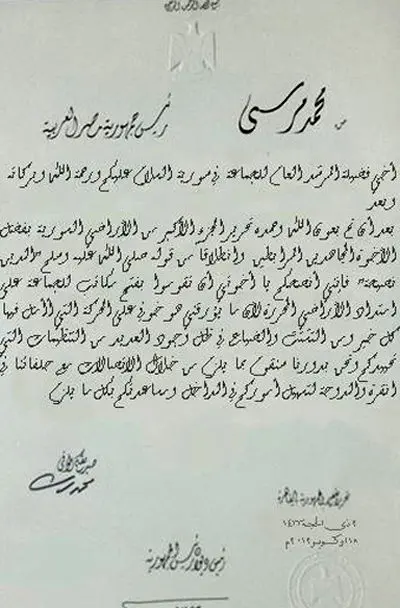 بسم الله الرحمن الرحيم
من محمد مرسى
رئيس جمهورية مصر العربية
أخي فضيلة المرشد العام للجماعة في سورية السلام عليكم ورحمة الله وبركاته
وبعد
بعد أن تم بعون الله وحمده تحرير الجزء الأكبر من الأراضي السورية بفضل
الأخوة المجاهدين المرابطين وانطلاقا من قوله صلى الله عليه وسلم "الدين
نصيحة" فإنني أنصحكم يا أخوتي أن تقوموا بفتح مكاتب للجماعة على
امتداد الأراضي المحررة لأن ما يؤرقني هو خوفي على الحركة التي آمل فيها
كل خير من التشتت والضياع في ظل وجود العديد من التنظيمات التي
تحيدكم ونحن بدورنا سنقوم بما يلزم من خلال الاتصالات مع حلفائنا في
أنقرة والدوحة لتسهيل أموركم في الداخل ومساعدتكم بكل ما يلزم
محمد مرسى
الجمهورية بالقاهرة
ذى الحجة ١٤٣٣ هـ
١٨ أكتوبر ٢٠١٢ م
رئيس ديوان رئيس الجمهورية